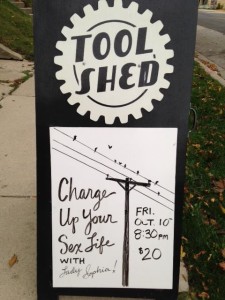 TOOL
SHED
Charge
Up Your
Sex Life
WITH
Lady Sophia!
FRI.
OCT. 10
8:30 pm
$20